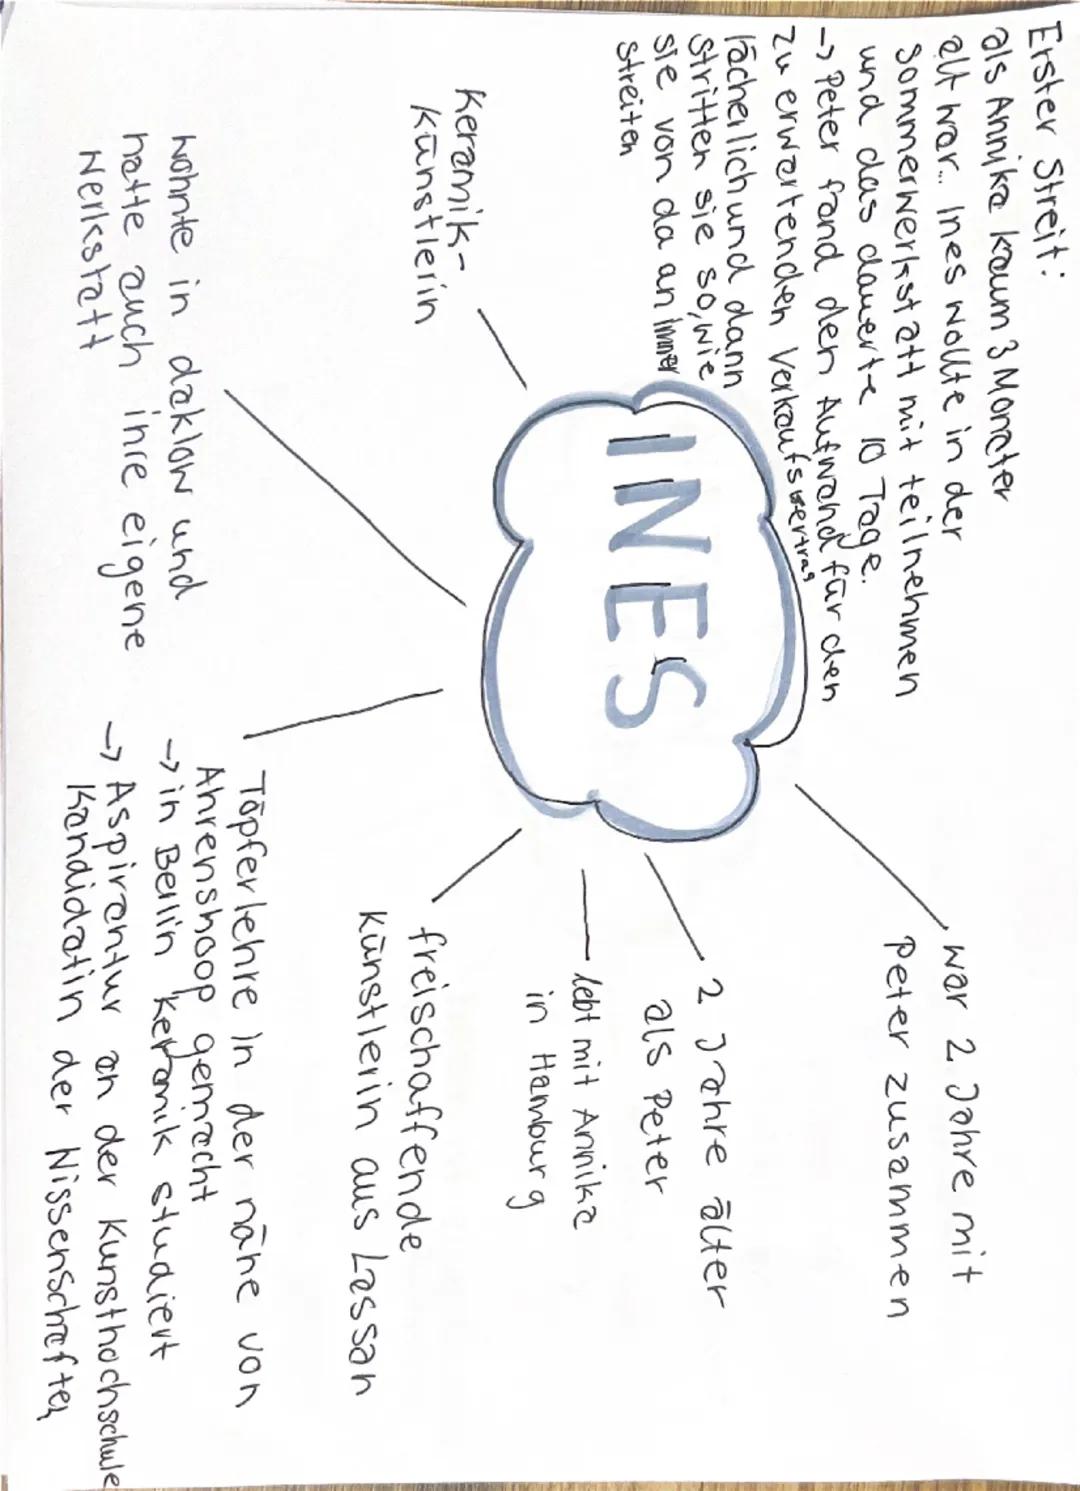 Erster Streit:
als Annika kaum 3 Monater
alt war... Ines wollte in der
Sommerwerkstatt mit teilnehmen
und das dauerte 10 Tage.
-> Peter fand den Aufwand für den
zu erwartenden Verkaufsvertrag
lächerlich und dann
stritten sie so, wie
sie von da an immer
streiten
INES
war 2 Jahre mit
Peter zusammen
2 Jahre älter
als Peter
lebt mit Annika
in Hamburg
freischaffende
Künstlerin aus Lassan
Töpferlehre in der nähe von
Ahrenshoop gemacht
-> in Berlin Keramik studiert
-> Aspirantur an der Kunsthochschule
Kandidatin der Wissenschaften
wohnte in daklow und
hatte auch ihre eigene
Werkstatt
Keramik-
künstlerin